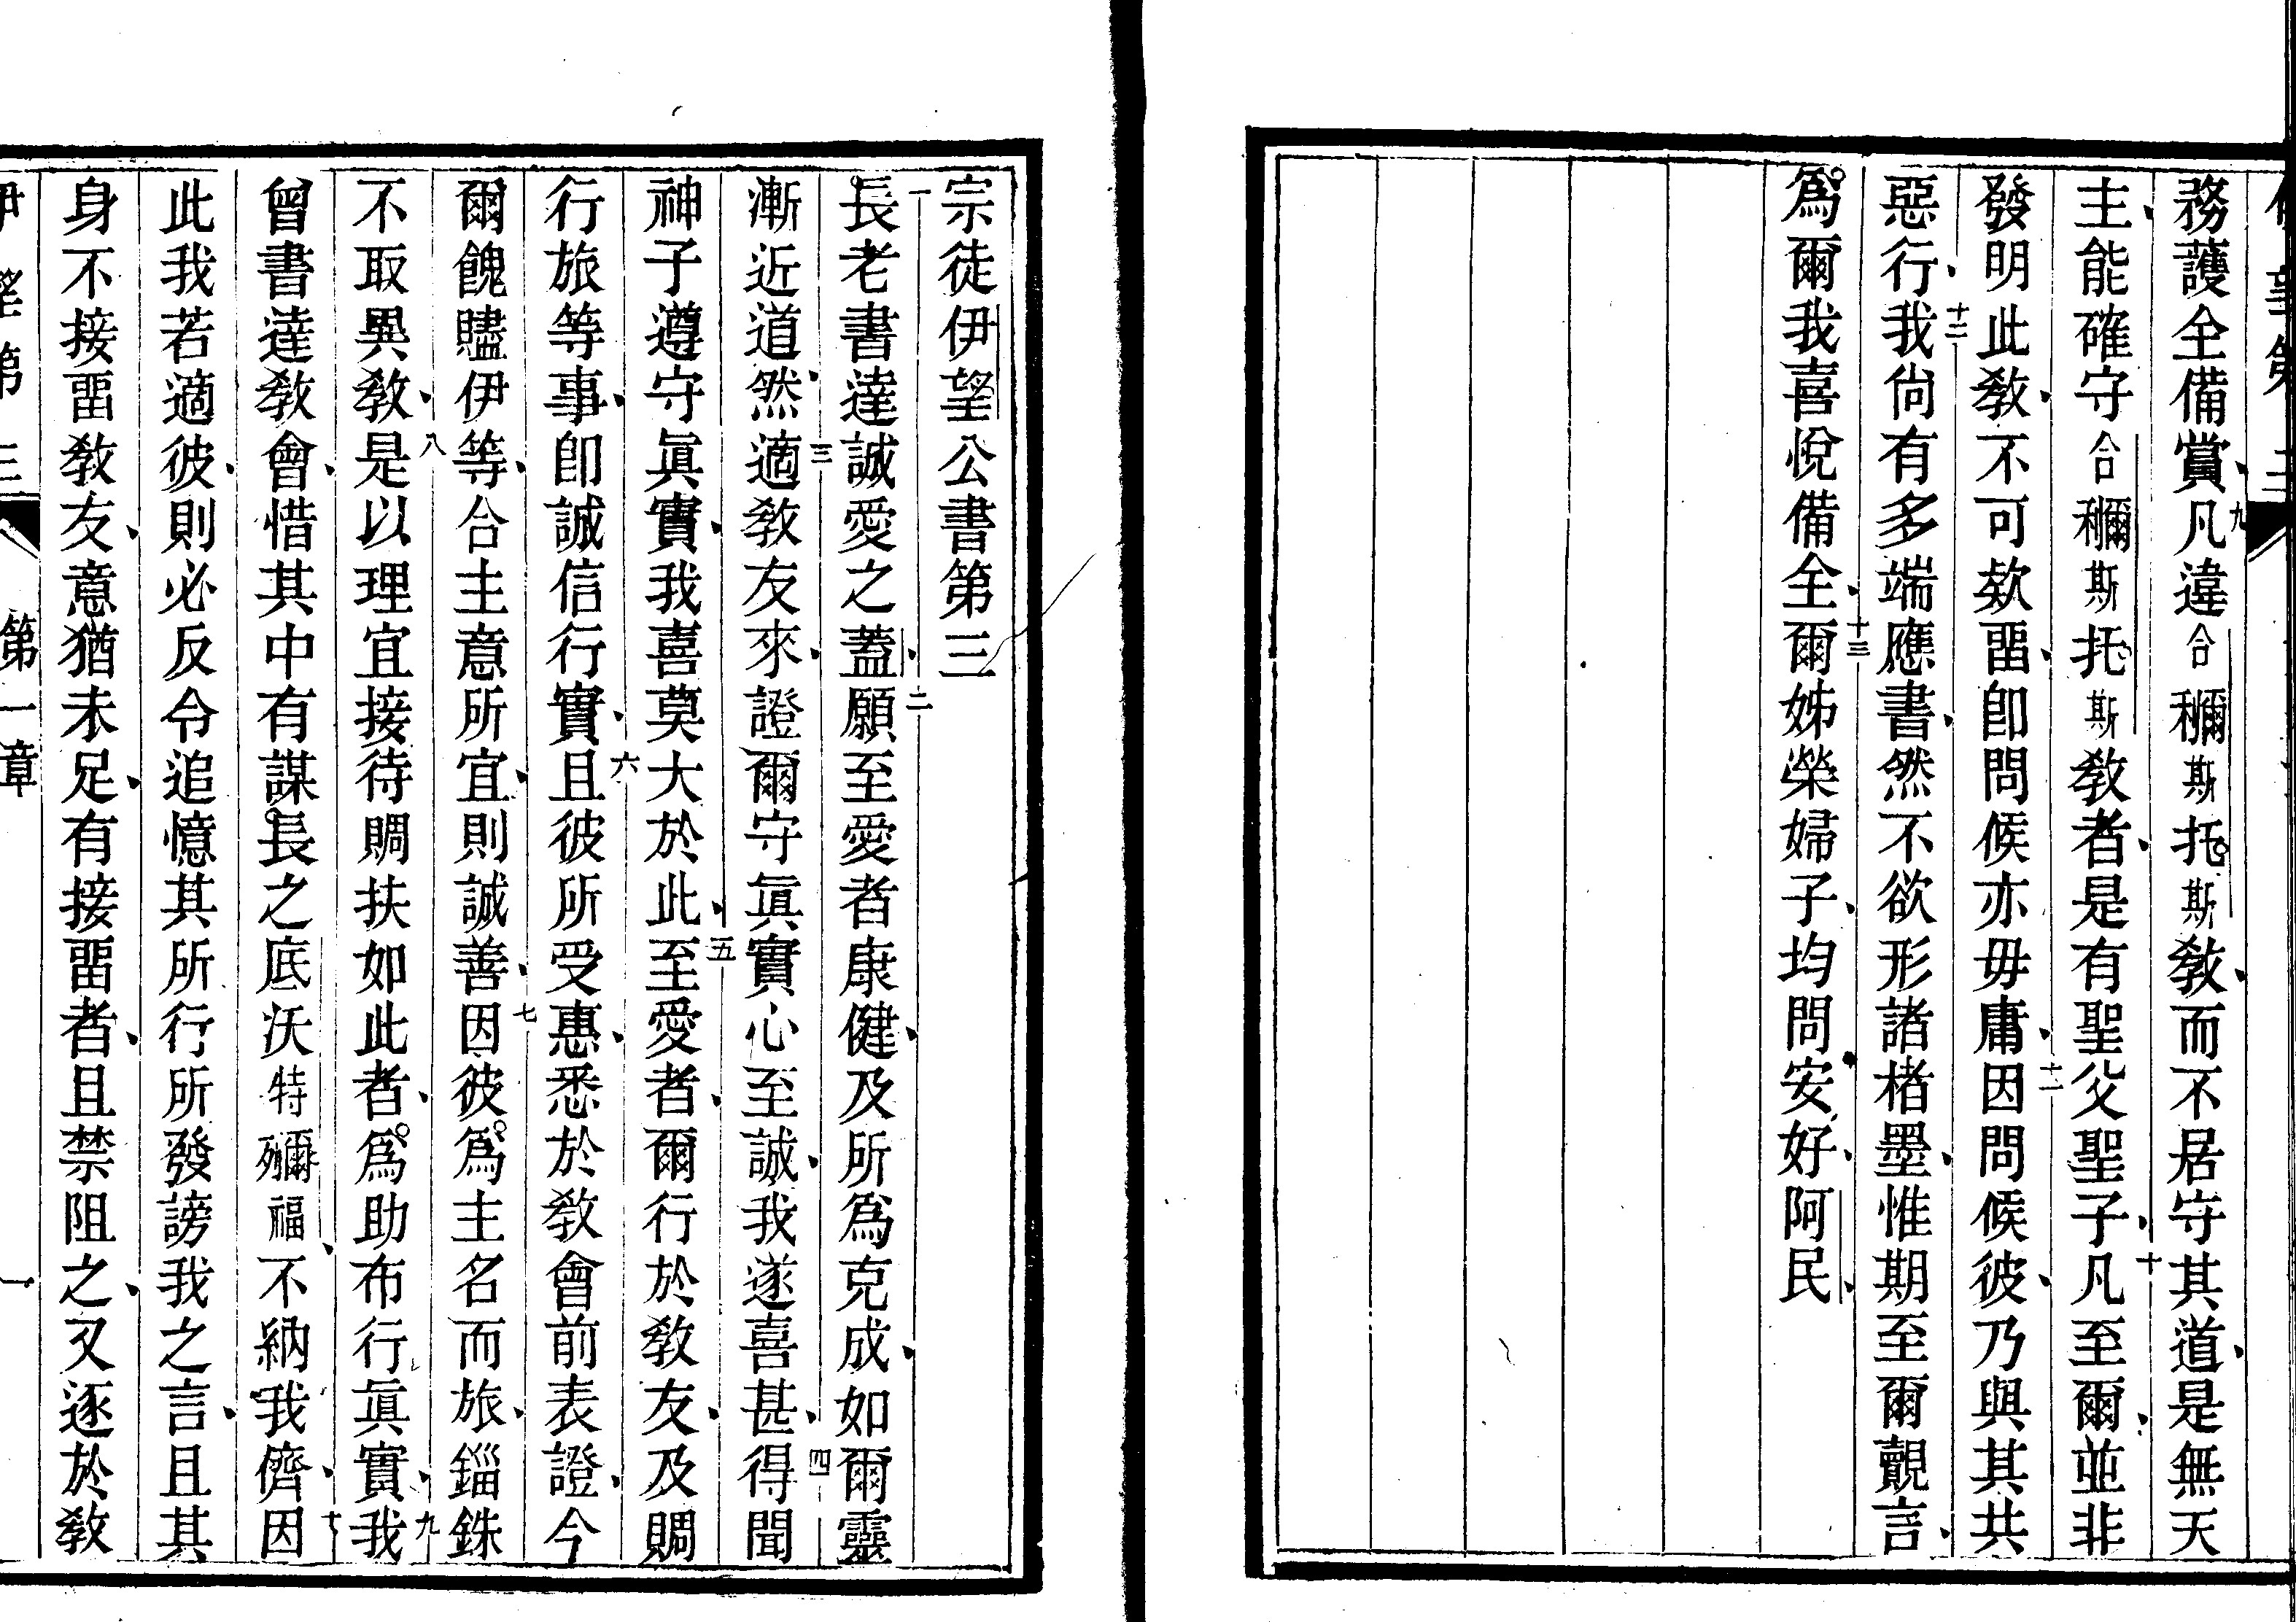 務護全備賞、九凡違合𥡝斯托斯教、而不居守其道、是無天
主、能確守合𥡝斯托斯教者、是有聖父聖子、十凡至爾、並非
發明此教、不可欵畱、卽問候亦毋庸、十一因問候彼、乃與其共
惡行、十二我尙有多端應書、然不欲形諸楮墨、惟期至爾觀言、
爲爾我喜悅備全、十三爾姊榮婦子、均問安好、阿民、
宗徒伊望公書第三
一長老書達誠愛之蓋、二願至愛者康健、及所爲克成、如爾靈
漸近道然、三適教友來、證爾守眞實心至誠、我遂喜甚、四得聞
神子遵守眞實、我喜莫大於此、五至愛者、爾行於教友、及賙
行旅等事、卽誠信行實、六且彼所受惠、悉於教會前表證、今
爾餽贐伊等、合主意所宜、則誠善、七因彼爲主名而旅、錙銖
不取異教、八是以理宜接待賙扶如此者、爲助布行眞實、九我
曾書達教會、惜其中有謀長之底沃特𡁠福、不納我儕、十因
此我若適彼、則必反令追憶其所行所發謗我之言、且其
身不接畱教友、意猶未足、有接畱者、且禁阻之、又逐於教
伊望第三 第一章 一